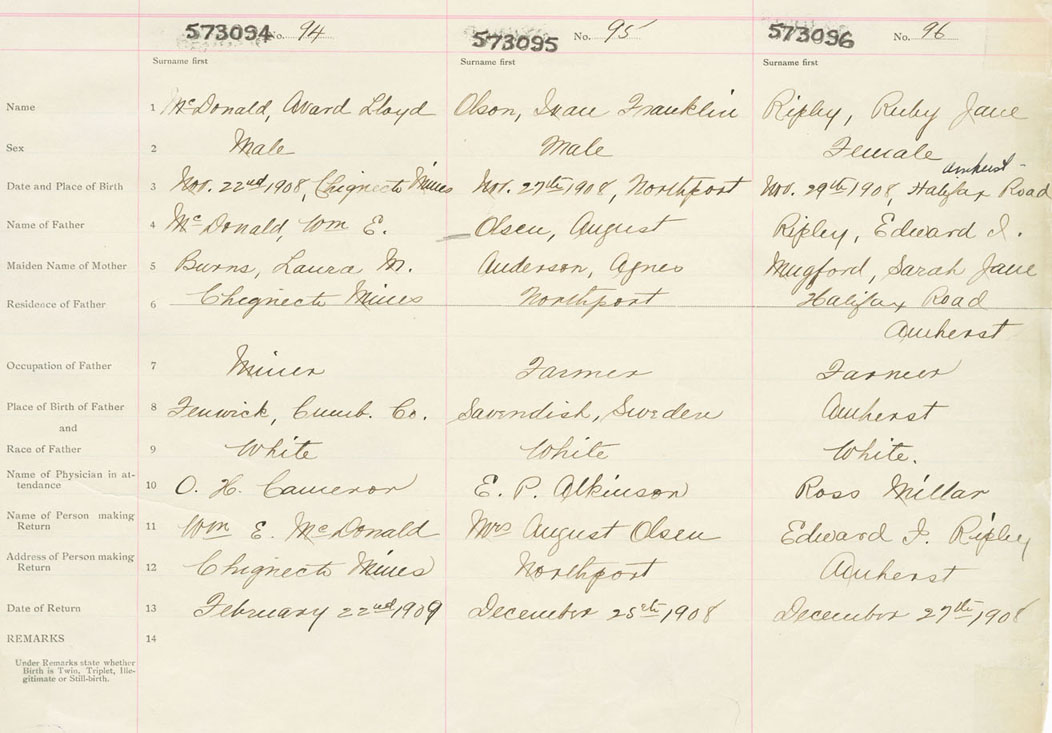 573094 No. 94 573095 No. 95 573096 No. 96
Surname first Surname first Surname first
Name 1 McDonald, Avard Lloyd Olson, Ivan Franklin Ripley, Ruby Jane
Sex 2 Male Male Female
Amherst
Date and Place of Birth 3 Nov. 22nd 1908, Chignecto Mines Nov. 27th 1908, Northport Nov. 29th 1908, Halifax Road
Name of Father 4 McDonald, Wm E. Olsen, August Ripley, Edward I.
Maiden Name of Mother 5 Burns, Laura M. Anderson, Agnes Mugford, Sarah Jane
Residence of Father 6 Chignecto Mines Northport Halifax Road
Amherst
Occupation of Father 7 Miner Farmer Farmer
Place of Birth of Father 8 Fenwick, Cumb. Co. Savendish, Sweden Amherst
and
Race of Father 9 White White White.
Name of Physician in at-
tendance 10 O. H. Cameron E. P. Atkinson Ross Millar
Name of Person making
Return 11 Wm E. McDonald Mrs August Olsen Edward I. Ripley
Address of Person making
Return 12 Chignecto Mines Northport Amherst
Date of Return 13 February 22nd 1909 December 25th 1908 December 27th, 1908
REMARKS 14
Under Remarks state whether
Birth is Twin, Triplet, Ille-
gitimate or Still-birth.